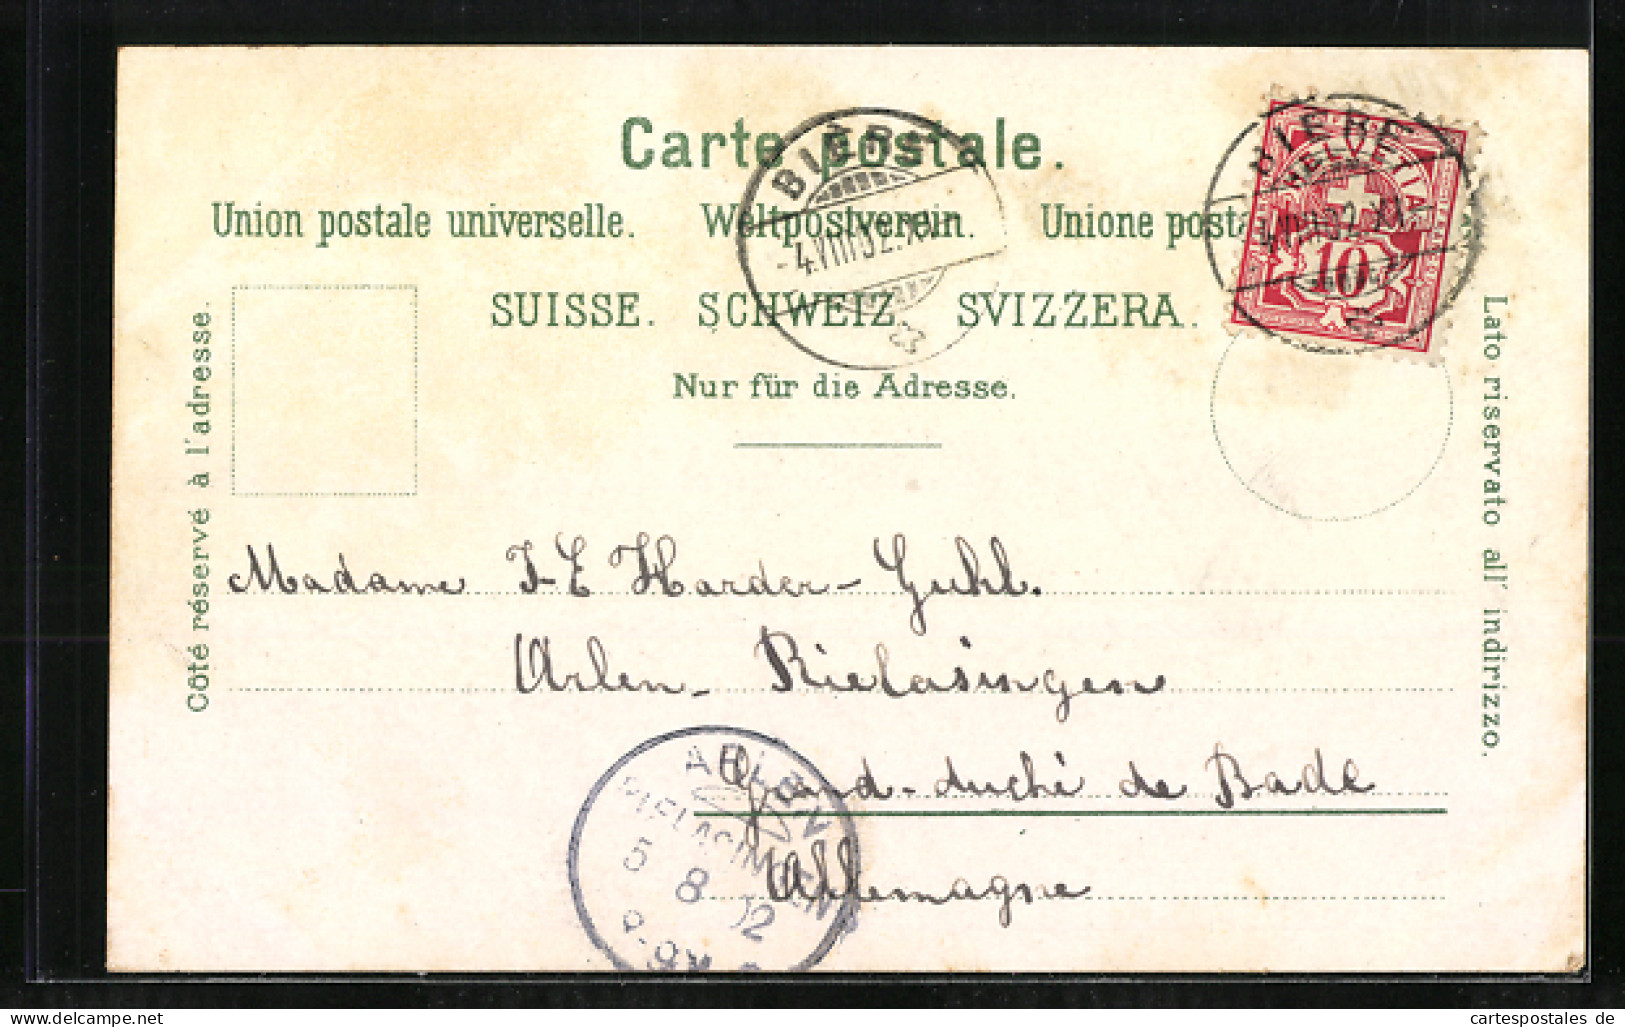 Carte postale.
Union postale universelle. Weltpostverein. Unione posta
SUISSE. SCHWEIZ. SVIZZERA.
Nur für die Adresse.
Côté réservé à l'adresse.
Lato riservato all' indirizzo.
BIÈRE
-4.VIII.02.XI
BIÈRE
-4.VIII.02.XI
HELVETIA
10
Madame J-E Harder-Guhl.
Arlen- Rielasingen
Grand-duché de Bade
Allemagne
ARLEN
RIELASINGEN
5 8 02
8-9V
cartespostales de